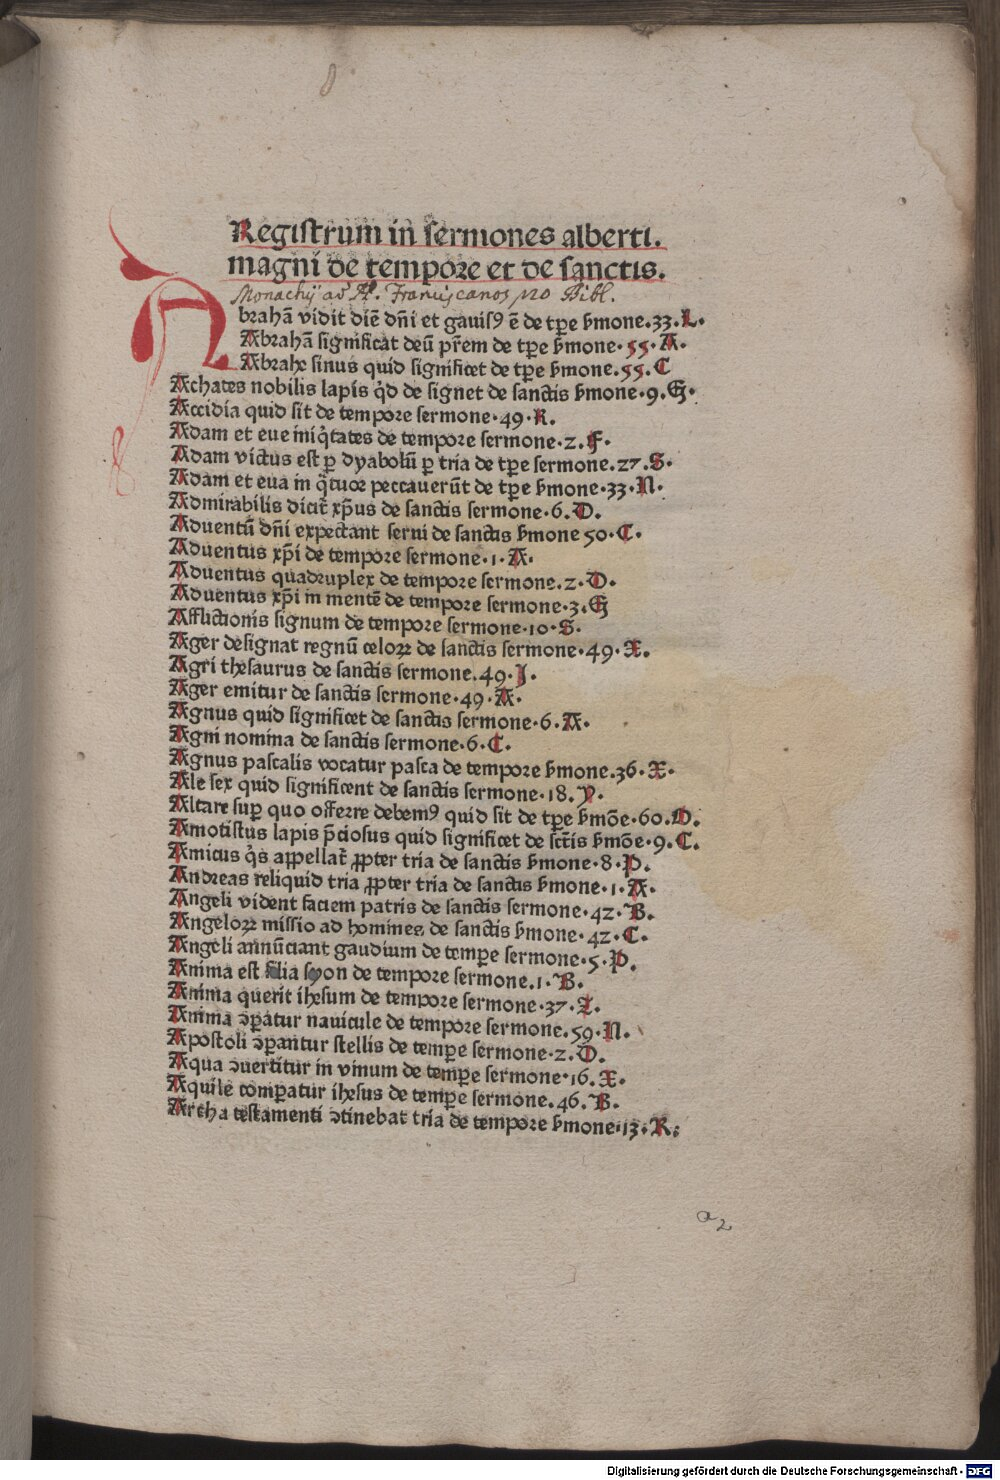 Registrum in sermones alberti.
magni de tempore et de sanctis.
Monachij ad PP. Franciscanos pro Bibl.
Abrahā vidit diē dn̄i et gauisꝰ ē de tp̄e ẜmone.33.L.
Abrahā significat deū pr̄em de tp̄e ẜmone.55.A.
Abrahe sinus quid significet de tp̄e ẜmone.55.C
Achates nobilis lapis qͥd de signet de sanctis ẜmone.9.G.
Accidia quid sit de tempore sermone.49.R.
Adam et eue iniqͥtates de tempore sermone.2.F.
Adam victus est ꝑ dyabolū ꝑ tria de tp̄e sermone.27.S.
Adam et eua in qͣtuor peccauerūt de tp̄e ẜmone.33.N.
Admirabilis dicit᷑ xp̄us de sanctis sermone.6.D.
Aduentū dn̄i expectant serui de sanctis ẜmone 50.C.
Aduentus xp̄i de tempore sermone.1.A.
Aduentus quadruplex de tempore sermone.2.D.
Aduentus xp̄i in mentē de tempore sermone.3.G
Afflictionis signum de tempore sermone.10.S.
Ager designat regnū celoꝝ de sanctis sermone.49.X.
Agri thesaurus de sanctis sermone.49.J.
Ager emitur de sanctis sermone.49.A.
Agnus quid significet de sanctis sermone.6.A.
Agni nomina de sanctis sermone.6.C.
Agnus pascalis vocatur pasca de tempore ẜmone.36.X.
Ale sex quid significent de sanctis sermone.18.Y.
Altare suꝑ quo offerre debemꝰ quid sit de tp̄e ẜmōe.60.O.
Amotistus lapis p̄ciosus quid significet de sct̄is ẜmōe.9.C.
Amicus qͥs appellat᷑ ꝓpter tria de sanctis ẜmone.8.P.
Andreas reliquid tria ꝓpter tria de sanctis ẜmone.1.A.
Angeli vident faciem patris de sanctis sermone.42.B.
Angeloꝝ missio ad homines de sanctis ẜmone.42.C.
Angeli annūciant gaudium de temꝑe sermone.5.P.
Anima est filia syon de tempore sermone.1.B.
Anima querit ihesum de tempore sermone.37.I.
Anima ꝯꝑatur nauicule de tempore sermone.59.N.
Apostoli ꝯꝑantur stellis de temꝑe sermone.2.D.
Aqua ꝯuertitur in vinum de temꝑe sermone.16.X.
Aquile comꝑatur ihesus de temꝑe sermone.46.B.
Archa testamenti ꝯtinebat tria de tempore ẜmone.13.R.
a2
Digitalisierung gefördert durch die Deutsche Forschungsgemeinschaft - DFG